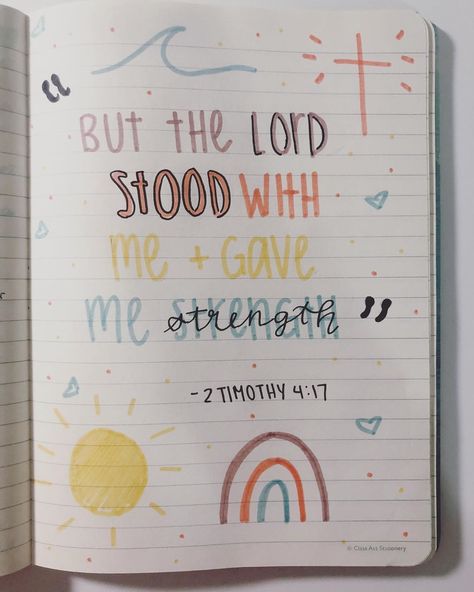 “
BUT THE LORD
STOOD WITH
ME + GAVE
ME STRENGTH strength ”
- 2 TIMOTHY 4:17
© Class Act Stationery